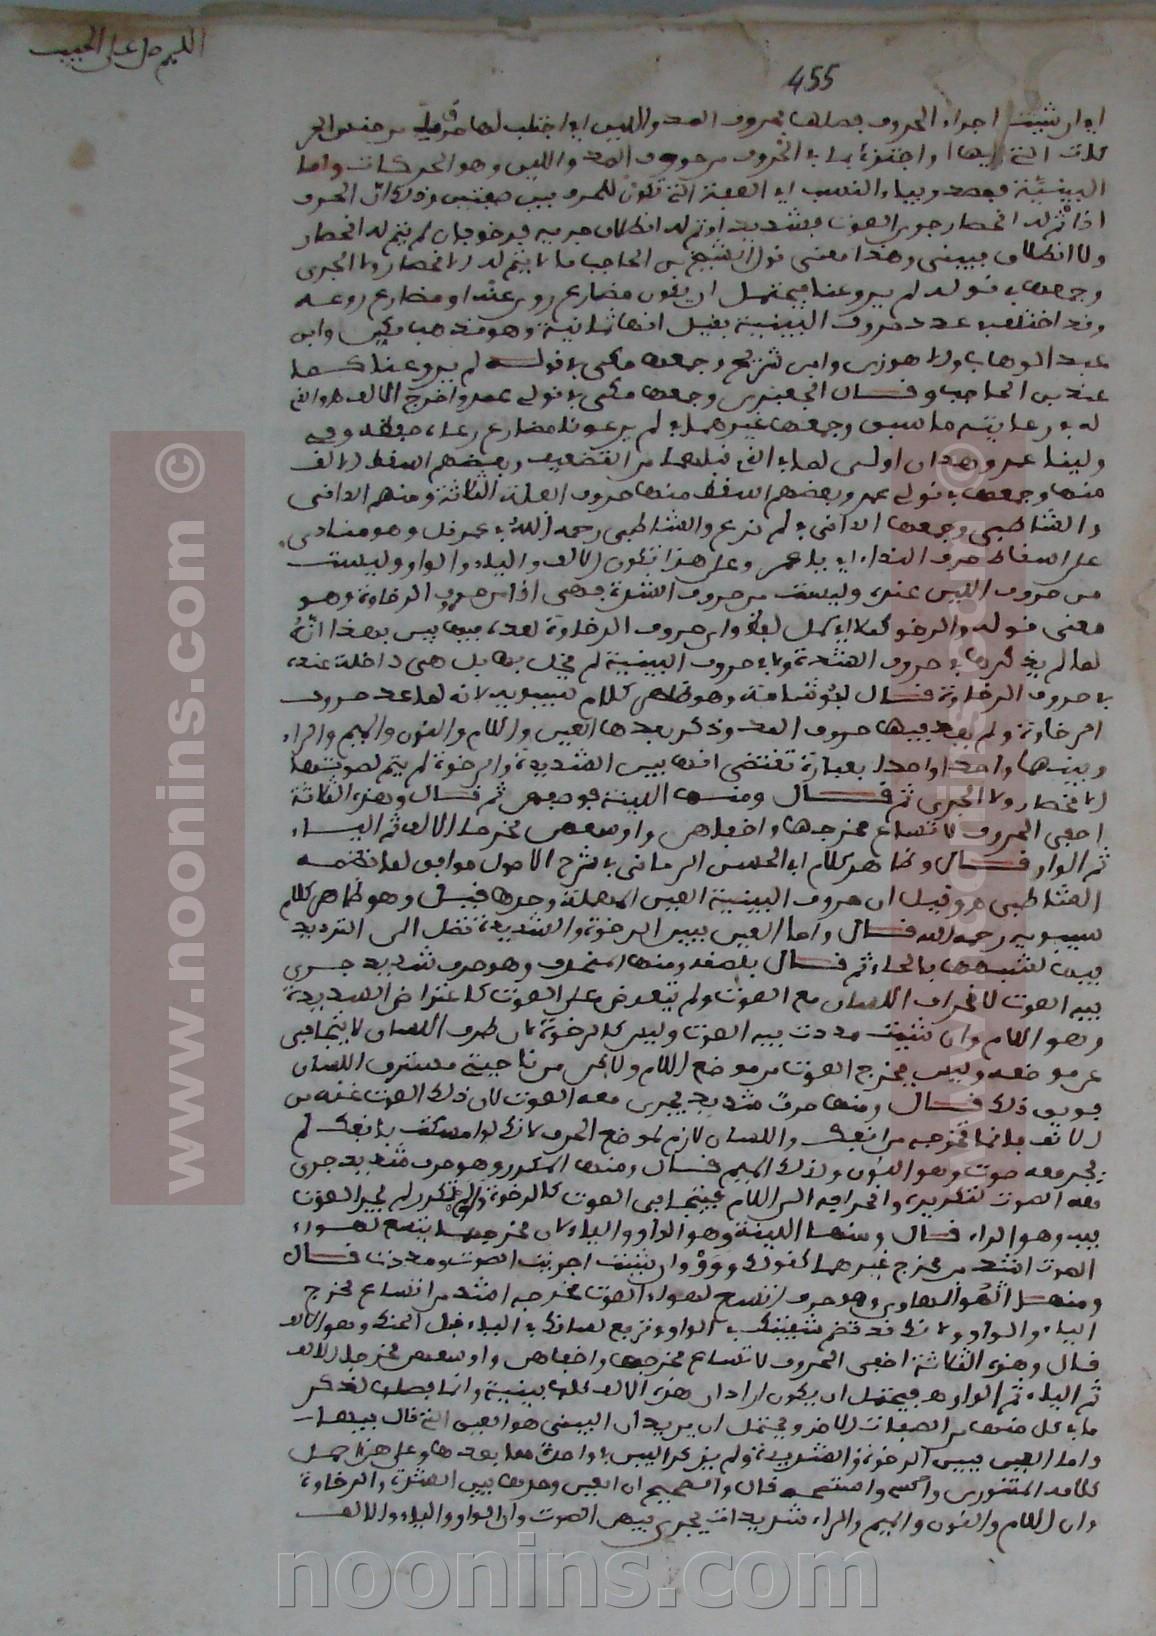 اللهم صل على الحبيب
455
اي ان شئت اجراء الحروف فصلها بحروف المد واللين اي اجتلب لها حرف من جنس الحر
كات التي او اجتزئ بما في الحروف من حروف المد واللين وهو الحركات واما
البينية فمصدر وبياء النسب اي الصفة التي تكون للحرف بين صفتين وذلك ان الحرف
اذا تم له انحصار جري الصوت فشديد او تم له انطلاق جريه فرخو فان لم يتم له انحصار
ولا انطلاق فبيني وهذا معنى قول الشيخ بن الحاجب ما لا يتم له الانحصار ولا الجري
وجمعها في قوله لم يروعنا فيحتمل ان يكون مضارع روى عنا او مضارع روعه
وقد اختلف في عدد حروف البينية فقيل انها ثمانية وهو مذهب مكي وابن
عبد الوهاب والاهوازي وابن شريح وجمعها مكي في قوله لم يروعنا كما
عند بن الحاجب وقال الجعبري وجمعها مكي في نولي عمر واخرج الالف
له في رعا يته ما سبق وجمعها غيرهما في لم يرعونا مضارع رعاه حفظه وفي
ولينا عمر وهذان اولى لما في التي قبلهما من التضعيف وبعضهم اسقط الالف
منها وجمعها في نولي عمر وبعضهم اسقط منها حروف العلة الثلاثة ومنهم الداني
والشاطبي وجمعها الداني في لم نرع والشاطبي رحمه الله في عمر نل وهو منادى
على اسقاط حرف النداء اي يا عمر وعلى هذا تكون الالف والياء والواو وليست
من حروف اللين عنده وليست من حروف الشدة فهي اذا من حروف الرخاوة وهو
معنى قوله والرخو كملا اي كمل وان حروف الرخاوة لعده فيها فبين بهذا انه
لما لم يذكرها في حروف الشدة ولا في حروف البينية لم يخل بها بل هي داخلة عنده
في حروف الرخاوة قال ابو شامة وهو ظاهر كلام سيبويه لانه لما عد حروف
الرخاوة ولم يعد فيها حروف المد وذكر بعدها العين واللام والنون والميم والراء
وبينها واحدا واحدا بعبارة تقتضي انها بين الشديدة والرخوة لم يتم لصوتها
الانحصار ولا الجري ثم قال ومنها اللينة ثم قال وهذه الثلاثة
اخفى الحروف لاتساع مخرجها واخفاهن واوسعهن مخرجا الالف ثم الياء
ثم الواو قال وظاهر كلام ابي الحسن الرماني في شرح الاصول موافق لما نظمه
الشاطبي وقيل ان حروف البينية العين المهملة وحدها فقط وهو ظاهر كلام
سيبويه رحمه الله قال واما العين فبين الرخوة والشديدة تصل الى الترديد
فيها لشبهها بالحاء ثم قال ومنها المنحرف وهو حرف شديد جرى
فيه الصوت لانحراف اللسان مع الصوت ولم يتعرض على الصوت كاعتراض الشديدة
وهو اللام وان شئت مددت فيه الصوت وليس كالرخوة لان طرف اللسان لا يتجافى
عن موضعه وليس يخرج الصوت من موضع اللام ولكن من ناحيتي مستدق اللسان
فويق ذلك قال ومنها حرف شديد يجري معه الصوت لان ذلك الصوت غنة من
الانف فانما تخرجه من انفك واللسان لازم لموضع الحرف لانك لو امسكت بانفك لم
يجر معه صوت وهو النون وكذلك الميم قال ومنها المكرر وهو حرف شديد جرى
فيه الصوت لتكريره وانحرافه الى اللام فيتجافى الصوت كالرخوة ولو لم يتكرر لم يجر الصوت
فيه وهو الراء قال ومنها اللينة وهو الواو والياء لان مخرجهما يتسع لهواء
الصوت اشد من مخرج غيرهما كقولك ووو وان شئت اجريت الصوت ومددت قال
ومنها الهاوي وهو حرف اتسع لهواء الصوت مخرجه اشد من اتساع مخرج
الياء والواو لانك قد تضم شفتيك في الواو وترفع لسانك في الياء قبل الحنك وهو الالف
قال وهذه الثلاثة اخفى الحروف لاتساع مخرجها واخفاهن واوسعهن مخرجا الالف
ثم الياء ثم الواو فيحتمل ان يكون اراد ان هذه الالف كلها بينية وانما فصلها لذكر
ما في كل منها من الصفات الاخر ويحتمل ان يريد ان البيني هو العين التي قال فيها
واما العين فبين الرخوة والشديدة ولم يذكر البين في واحدة مما بعدها وعلى هذا حمل
كلامه المنتوري قال والصحيح ان العين وحدها بين الشدة والرخاوة
وان اللام والنون والميم والراء شديدات يجري فيهن الصوت وان الواو والياء والالف
www.noonins.com ©
www.noonins.com ©
noonins.com